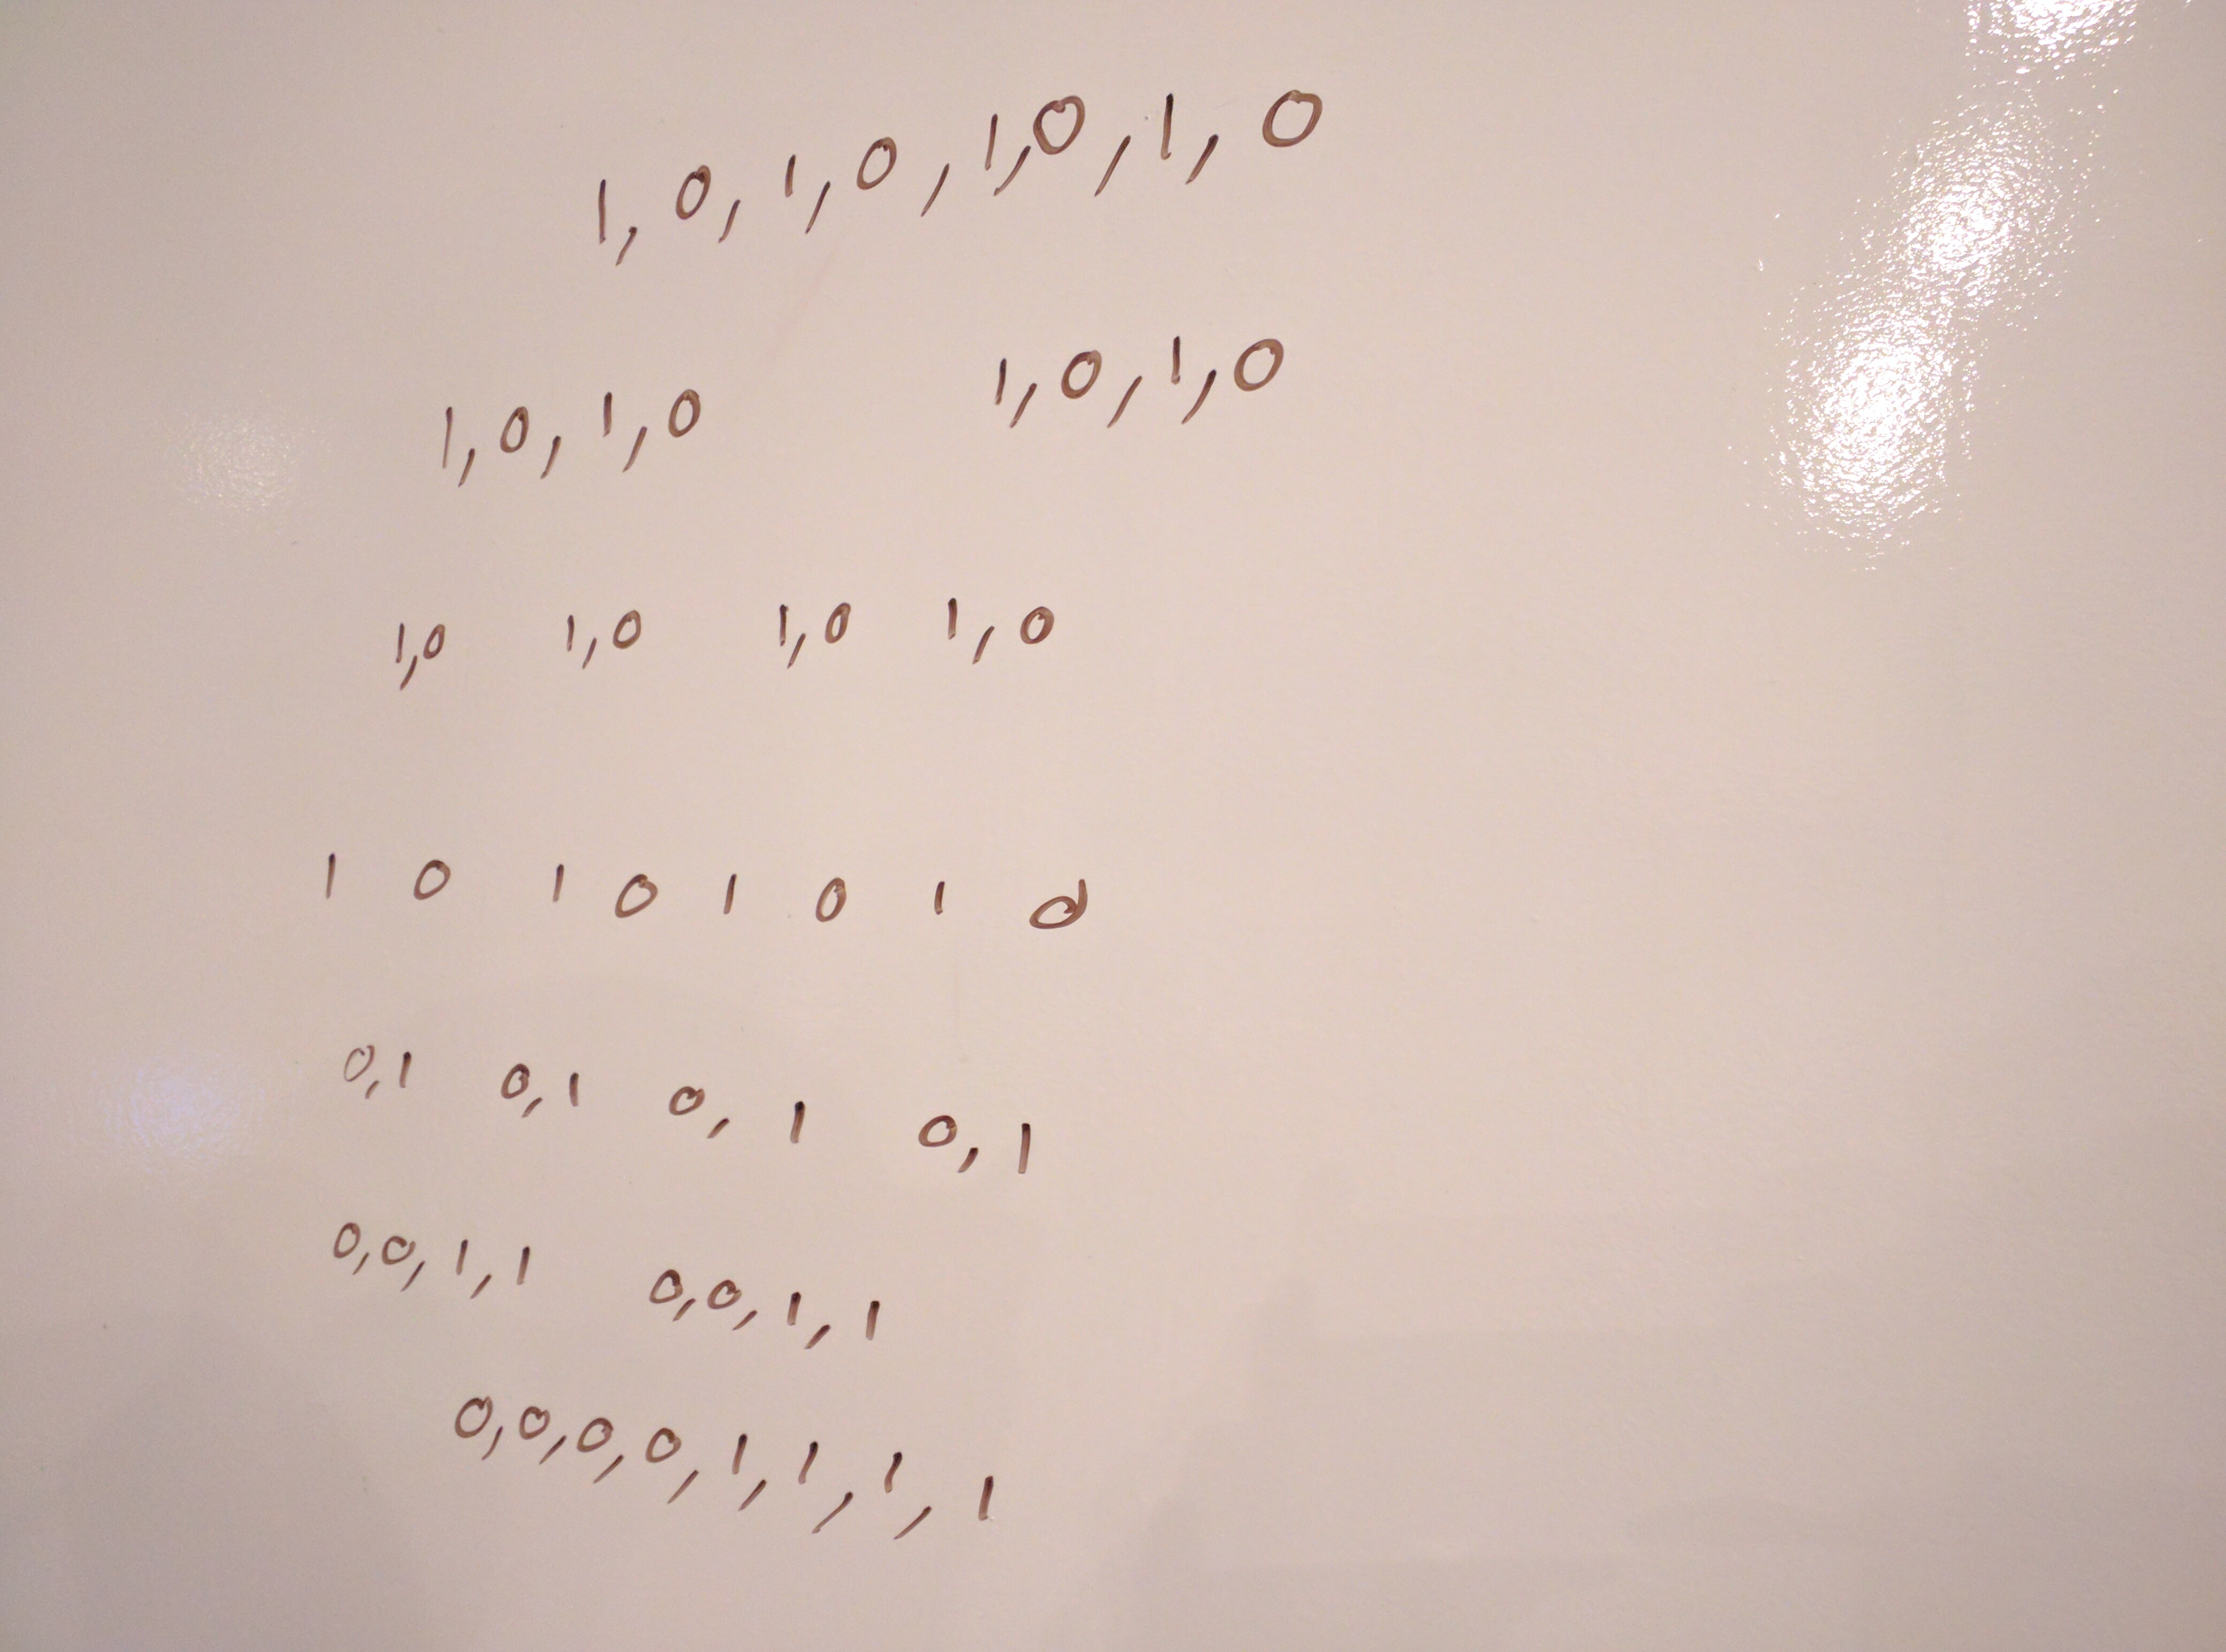 1, 0, 1, 0, 1, 0, 1, 0
1, 0, 1, 0 1, 0, 1, 0
1, 0 1, 0 1, 0 1, 0
1 0 1 0 1 0 1 0
0, 1 0, 1 0, 1 0, 1
0, 0, 1, 1 0, 0, 1, 1
0, 0, 0, 0, 1, 1, 1, 1